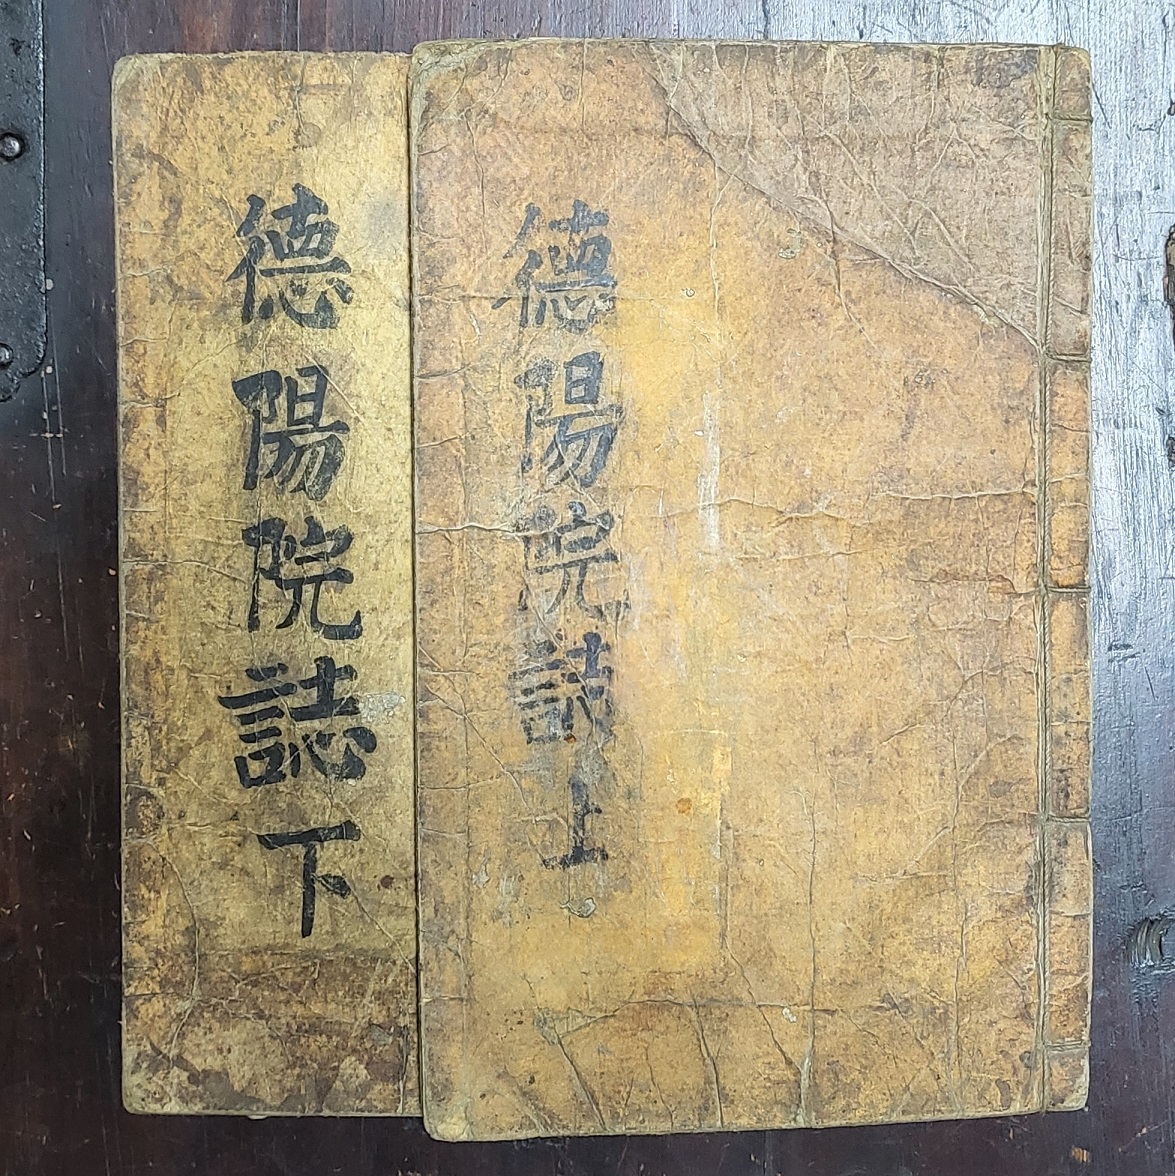 德陽院誌上
德陽院誌下